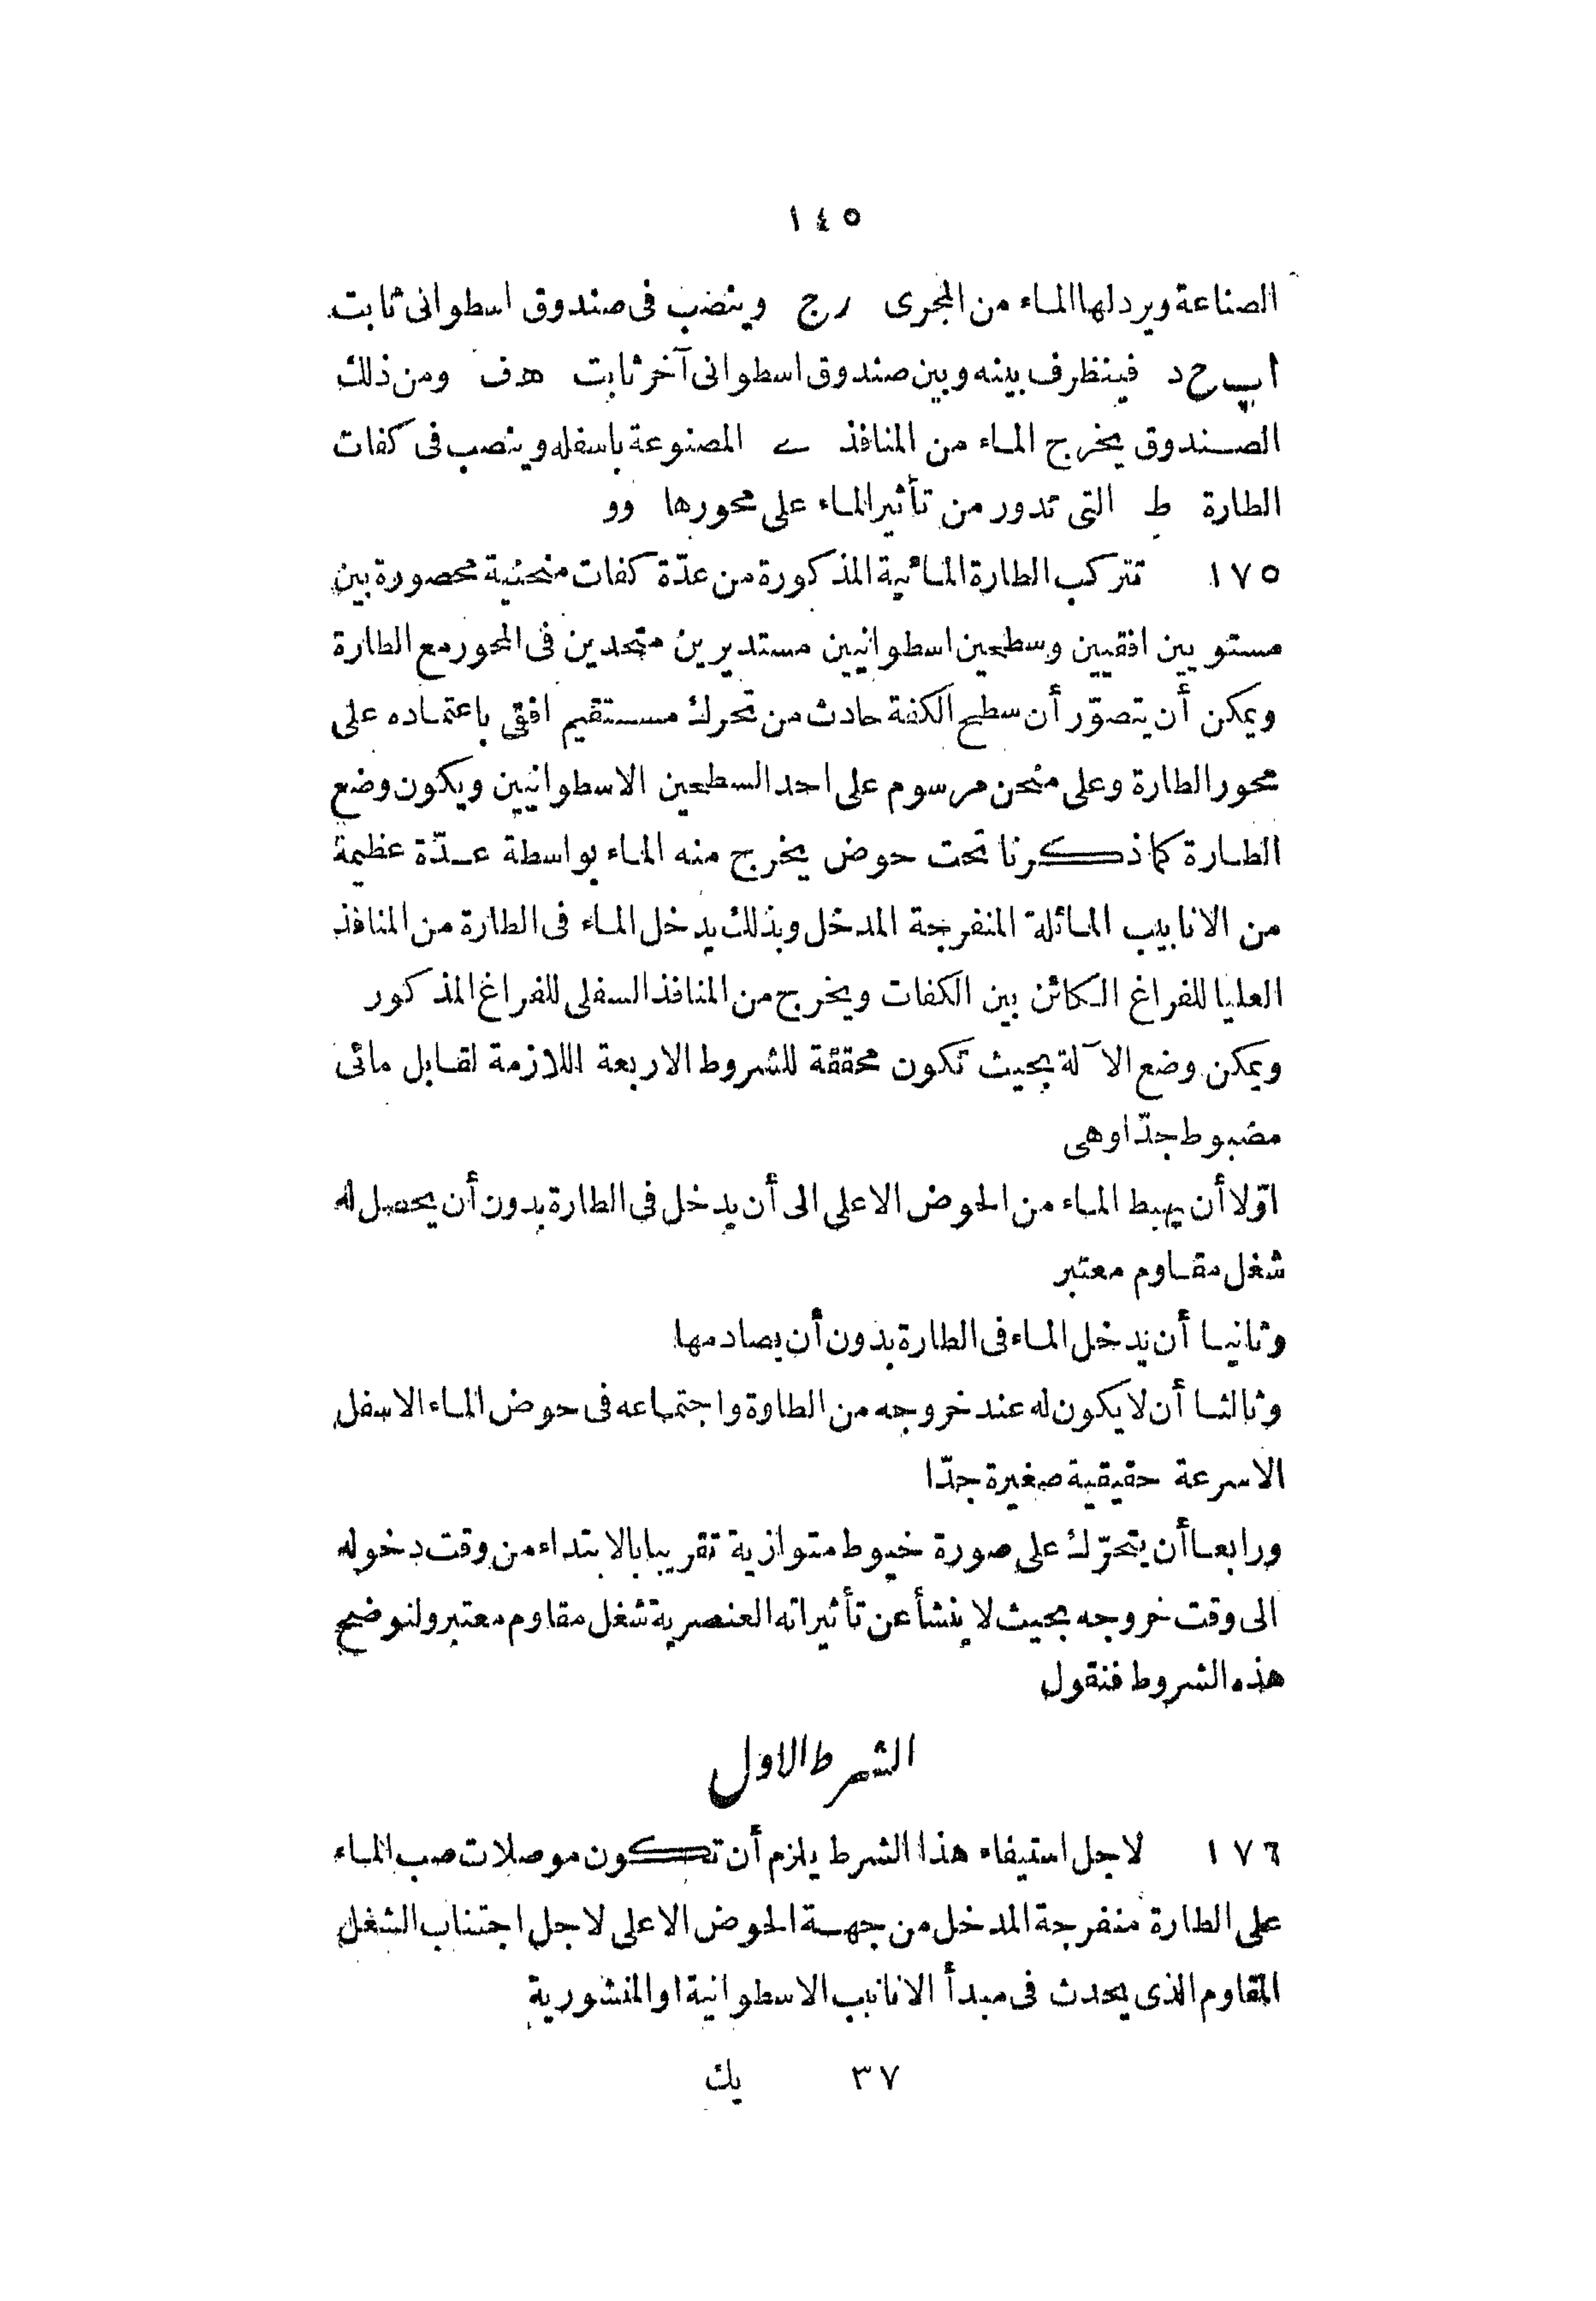 ١٤٥
الصناعة ويرد لها الماء من المجرى رج وينصب فى صندوق اسطوانى ثابت
اب ح د فينظرف بينه وبين صندوق اسطوانى آخر ثابت هف ومن ذلك
الصندوق يخرج الماء من المنافذ ے المصنوعة باسفله وينصب فى كفات
الطارة ط التى تدور من تأثير الماء على محورها وو
١٧٥ تتركب الطارة المائية المذكورة من عدّة كفات منحنية محصورة بين
مستويين افقيين وسطحين اسطوانيين مستديرين متحدين فى المحور مع الطارة
ويمكن أن يتصوّر أن سطح الكفة حادث من تحرك مستقيم افقى باعتماده على
محور الطارة وعلى منحن مرسوم على احد السطحين الاسطوانيين ويكون وضع
الطارة كما ذكرنا تحت حوض يخرج منه الماء بواسطة عدّة عظيمة
من الانابيب المائلة المنفرجة المدخل وبذلك يدخل الماء فى الطارة من المنافذ
العليا للفراغ الكائن بين الكفات ويخرج من المنافذ السفلى للفراغ المذكور
ويمكن وضع الآلة بحيث تكون محققة للشروط الاربعة اللازمة لقابل مائى
مضبوط جدّا وهى
اوّلا أن يهبط الماء من الحوض الاعلى الى أن يدخل فى الطارة بدون أن يحصل له
شغل مقاوم معتبر
وثانيا أن يدخل الماء فى الطارة بدون أن يصادمها
وثالثا أن لا يكون له عند خروجه من الطارة واجتماعه فى حوض الماء الاسفل
الاسرعة حقيقية صغيرة جدّا
ورابعا أن يتحرّك على صورة خيوط متوازية تقريبا بالابتداء من وقت دخوله
الى وقت خروجه بحيث لا ينشأ عن تأثيراته العنصرية شغل مقاوم معتبر ولنوضح
هذه الشروط فنقول
الشرط الاول
١٧٦ لاجل استيفاء هذا الشرط يلزم أن تكون موصلات صب الماء
على الطارة منفرجة المدخل من جهة الحوض الاعلى لاجل اجتناب الشغل
المقاوم الذى يحدث فى مبدأ الانابيب الاسطوانية او المنشورية
٣٧ يك